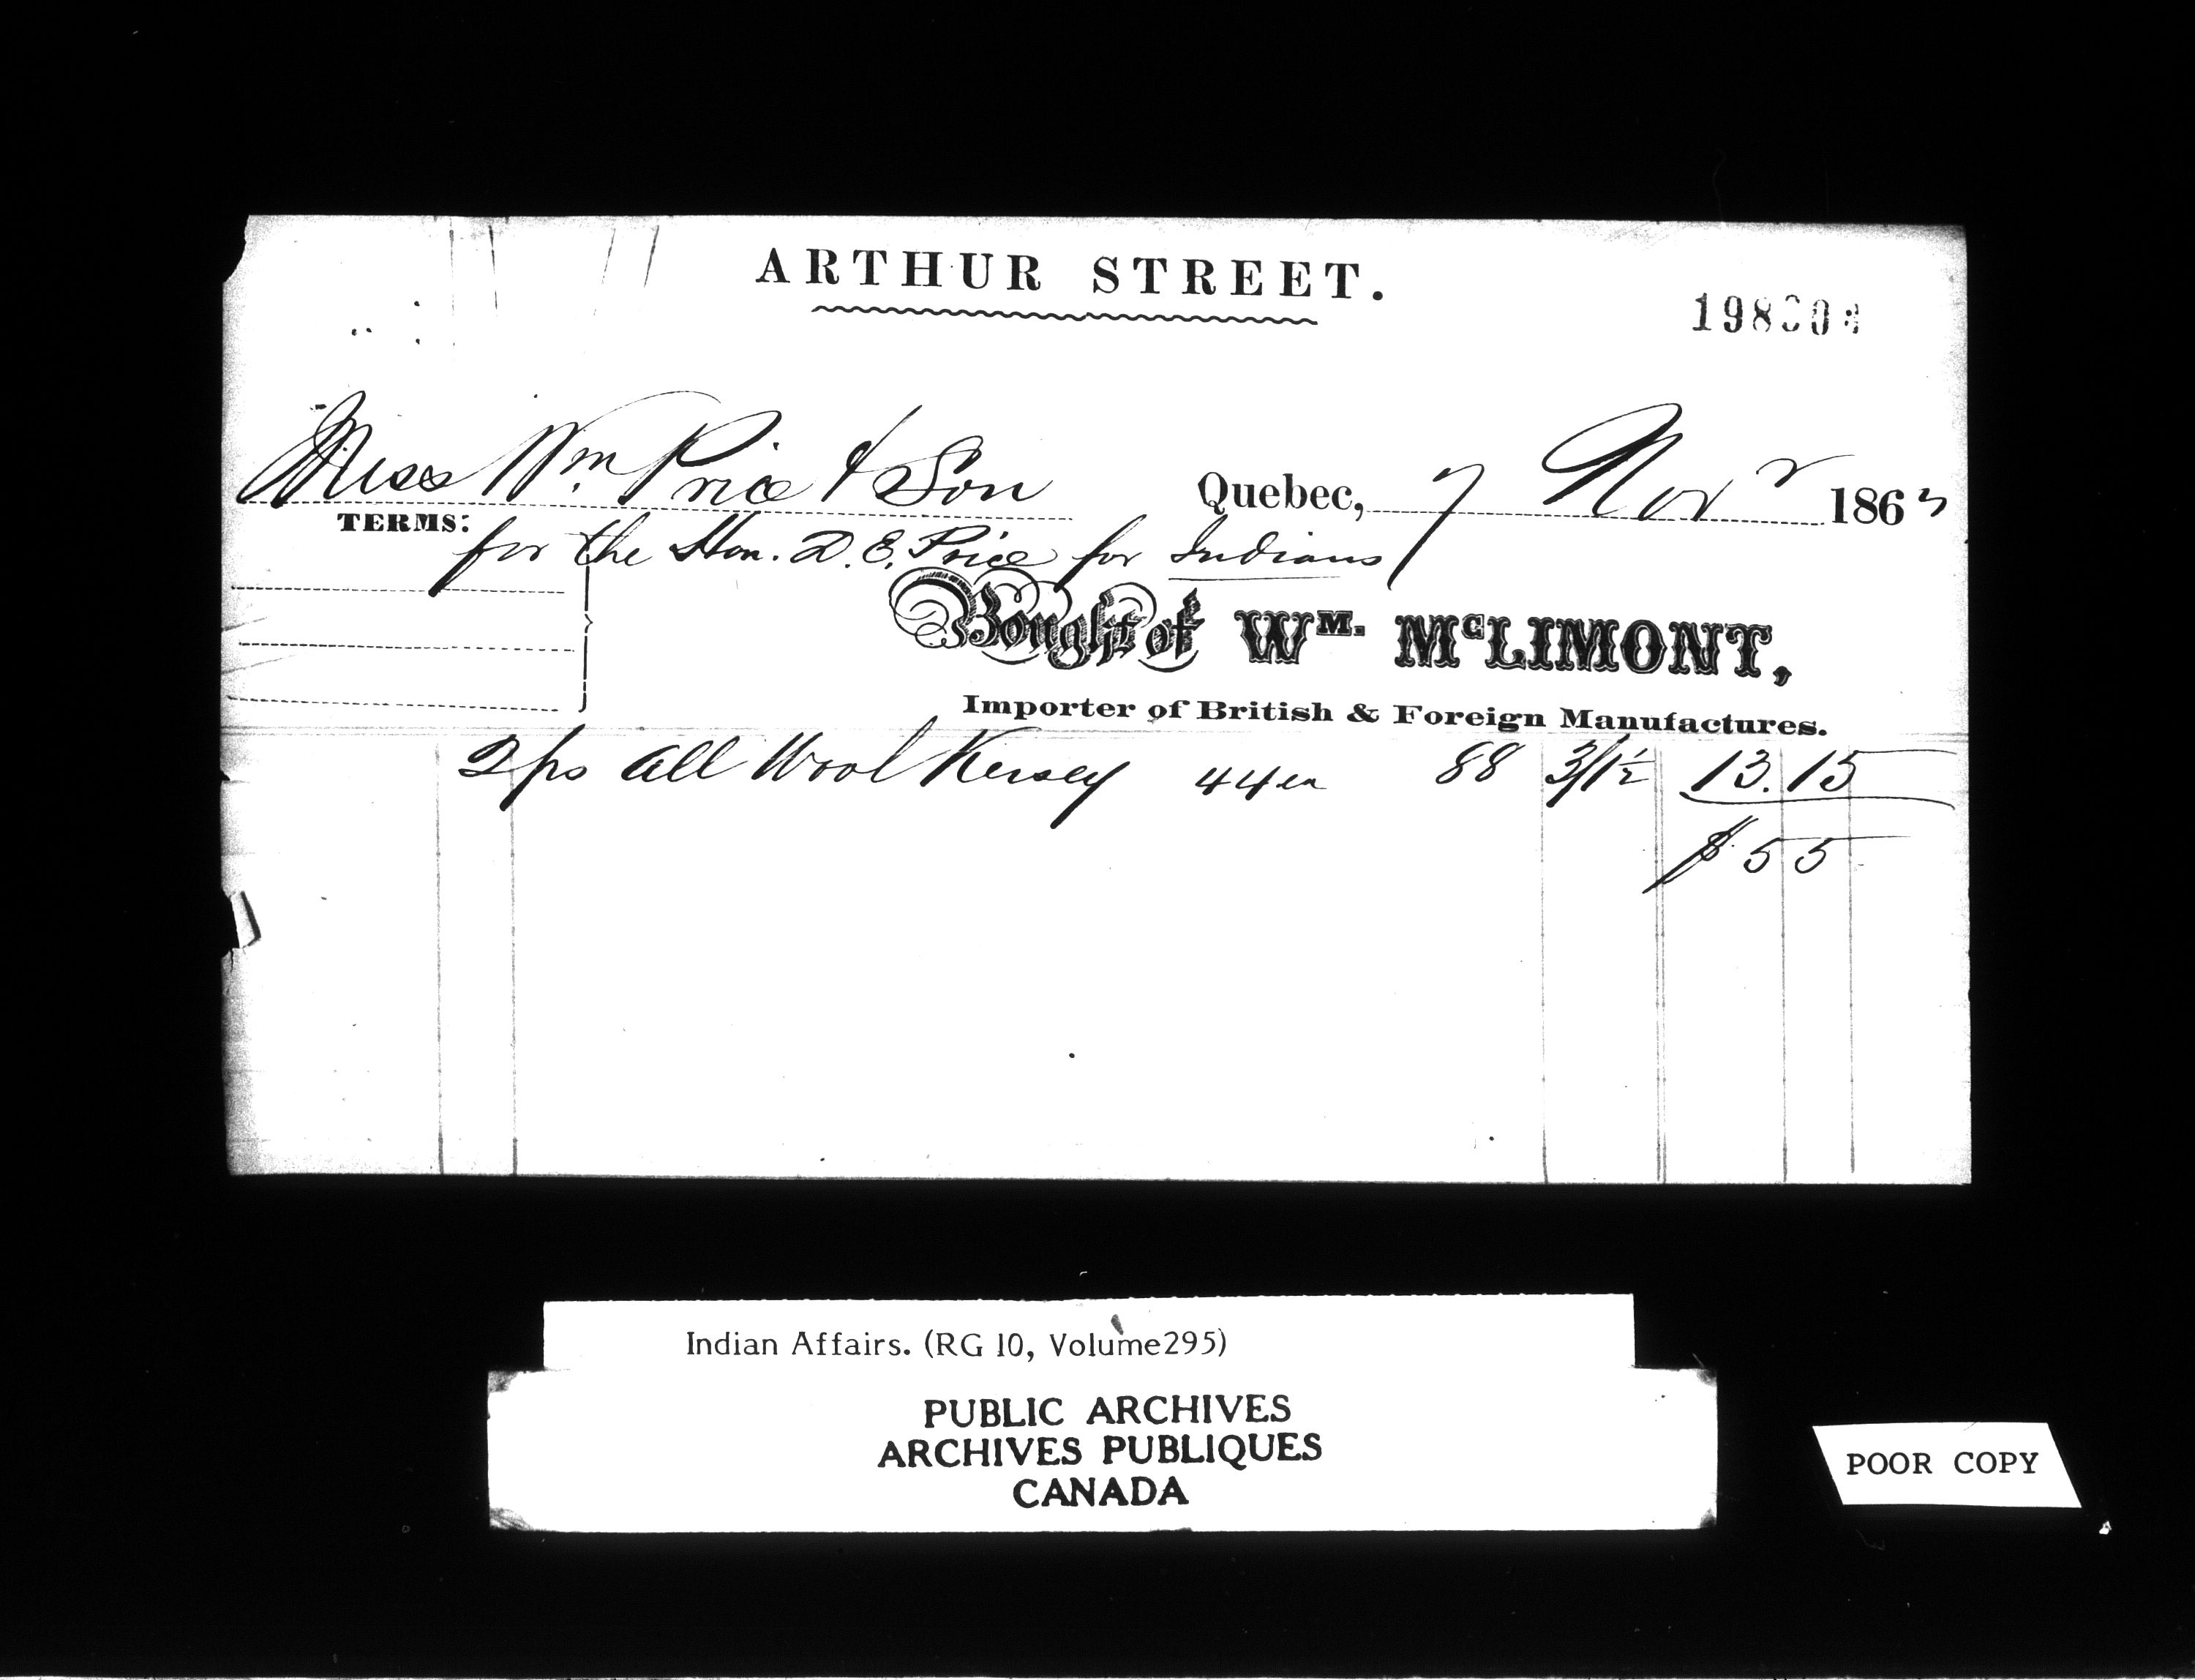 ARTHUR STREET.
Mess Wm. Price & Son
Quebec, 7 Novr 1863
TERMS:
for the Hon. D. E. Price for Indians
Bought of WM. McLIMONT,
Importer of British & Foreign Manufactures.
2 ps all Wool Kersey 44 ea 88 3/1½ 13.15
$55
Indian Affairs. (RG 10, Volume 295)
PUBLIC ARCHIVES
ARCHIVES PUBLIQUES
CANADA
POOR COPY